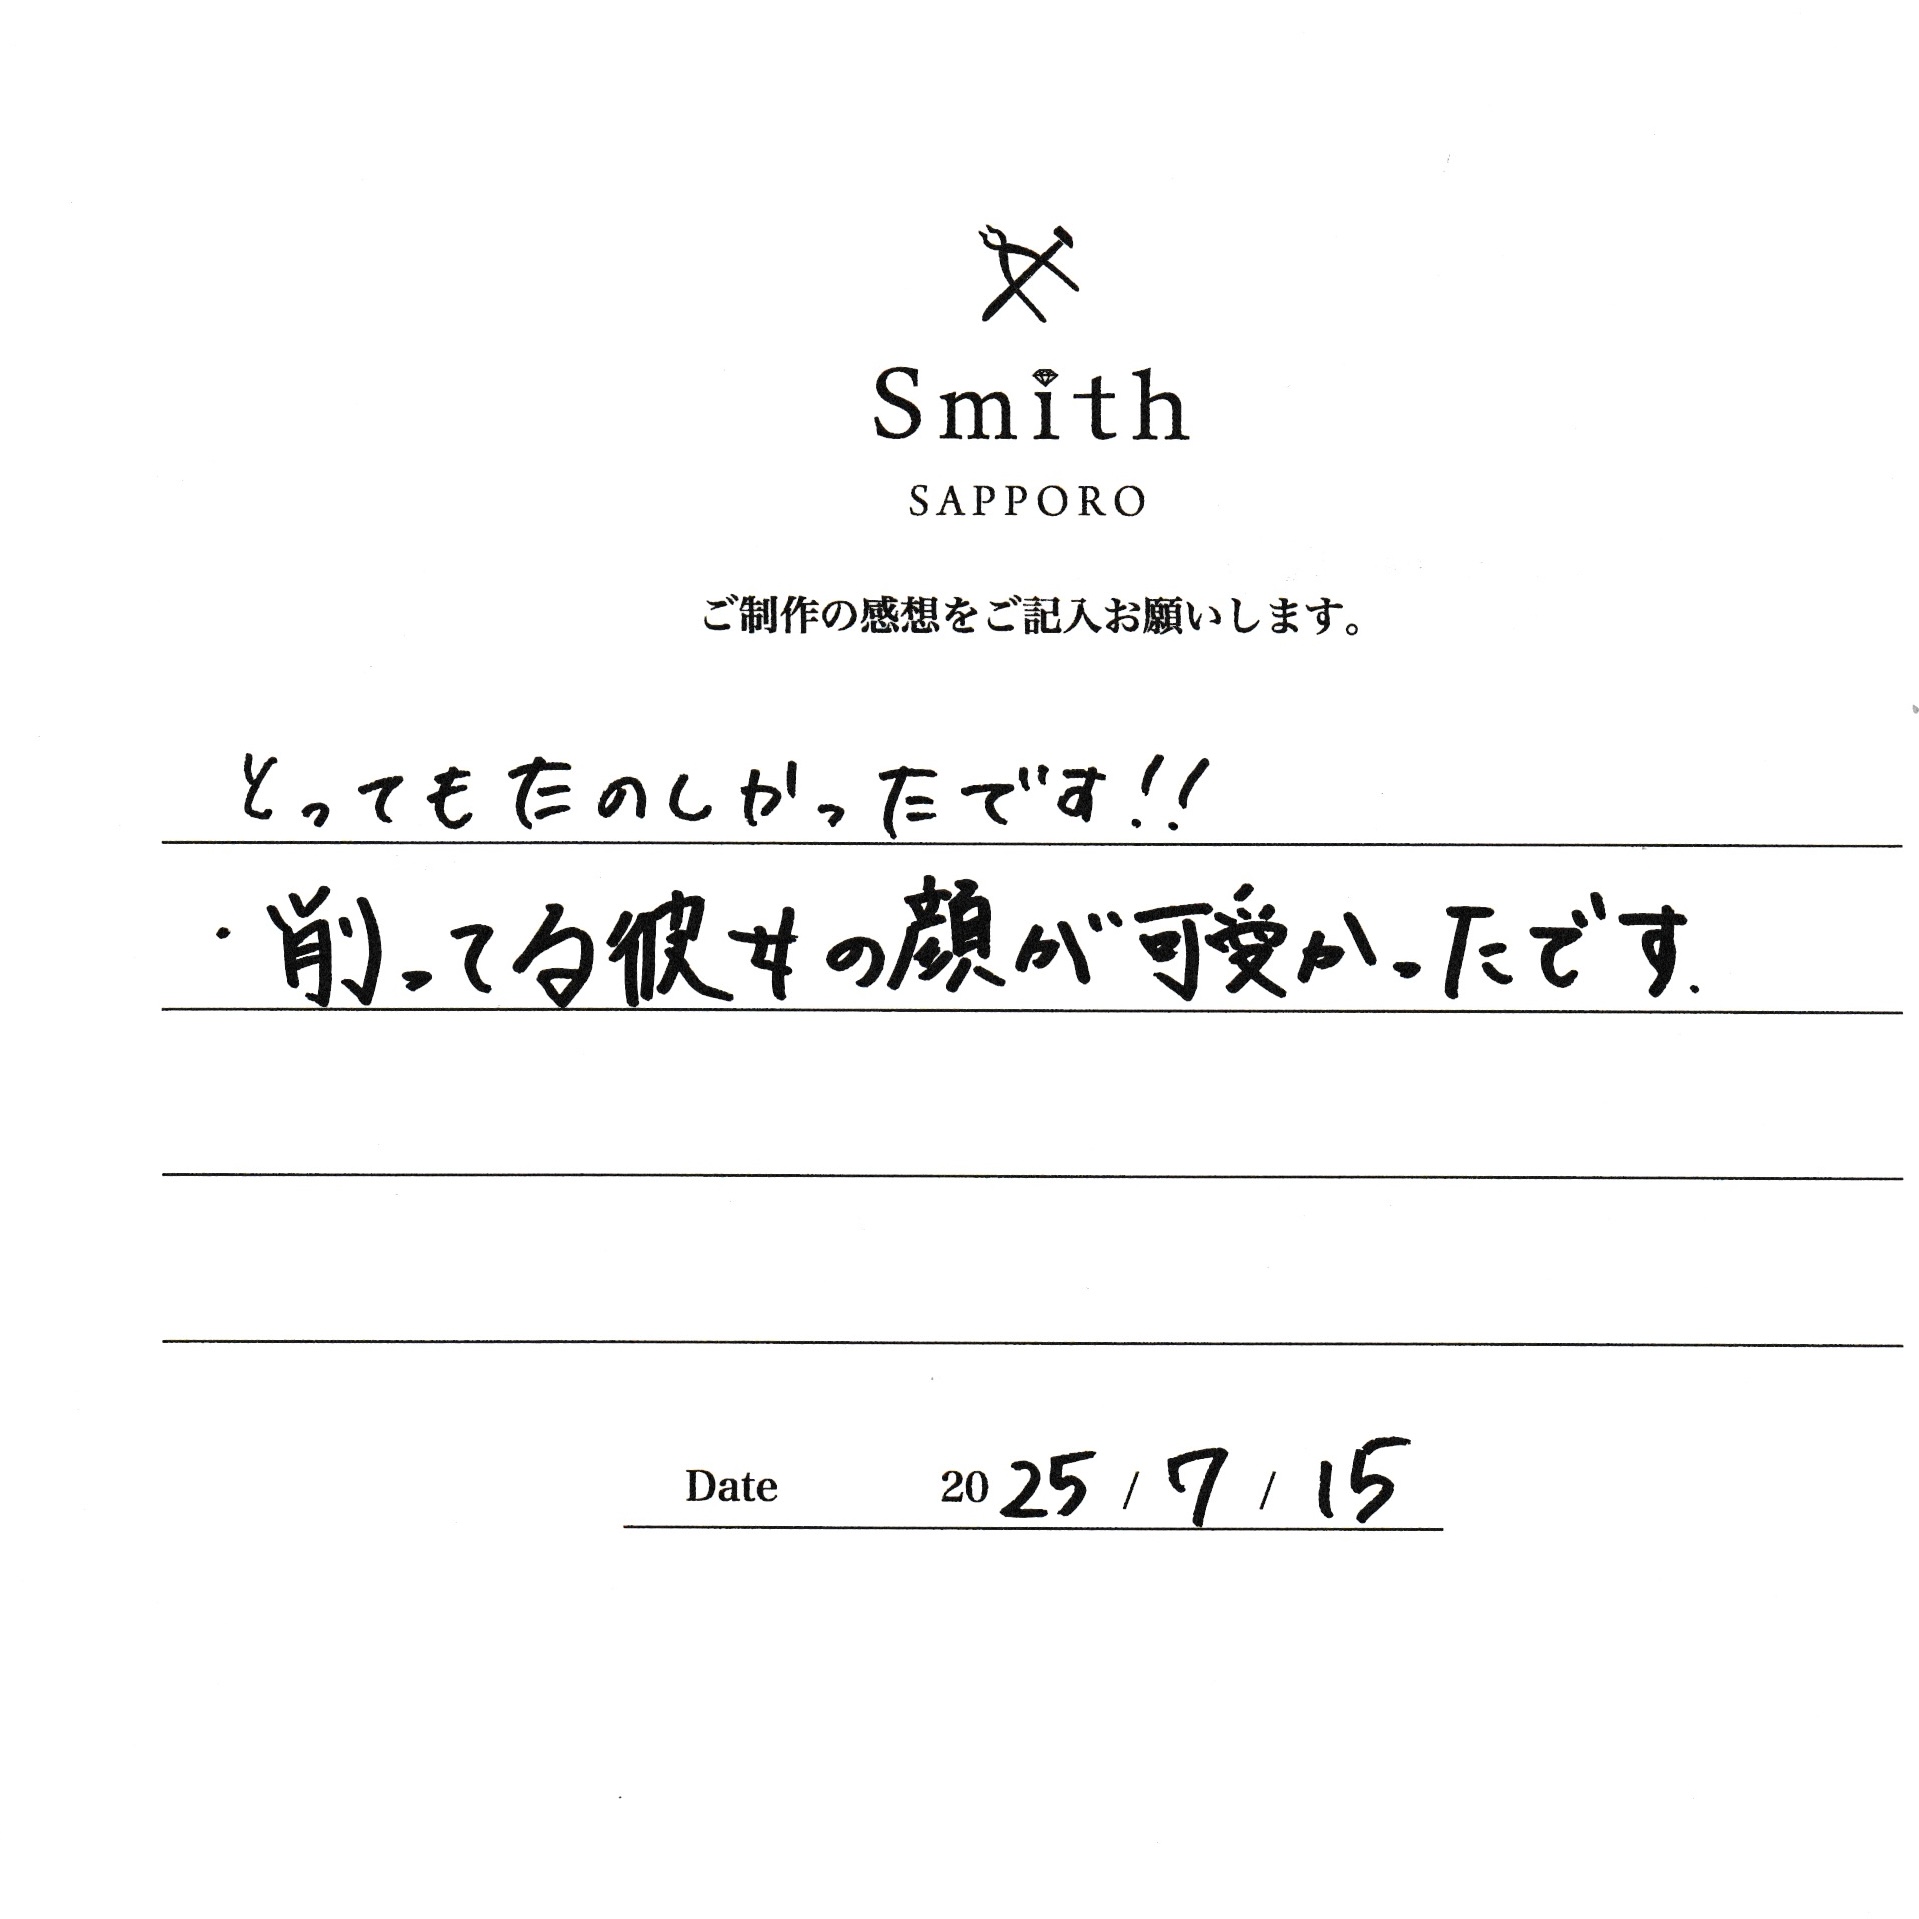 Smith
SAPPORO
ご制作の感想をご記入お願いします。
とってもたのしかったです!!
・削ってる彼女の顔が可愛かったです.
Date 2025/7/15